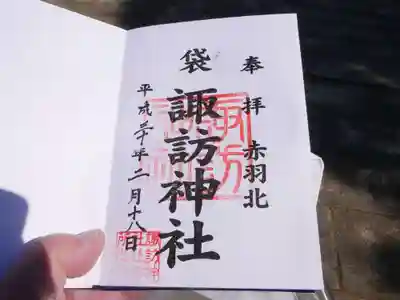 奉拝 赤羽北
袋 諏訪神社
平成三十年二月十八日